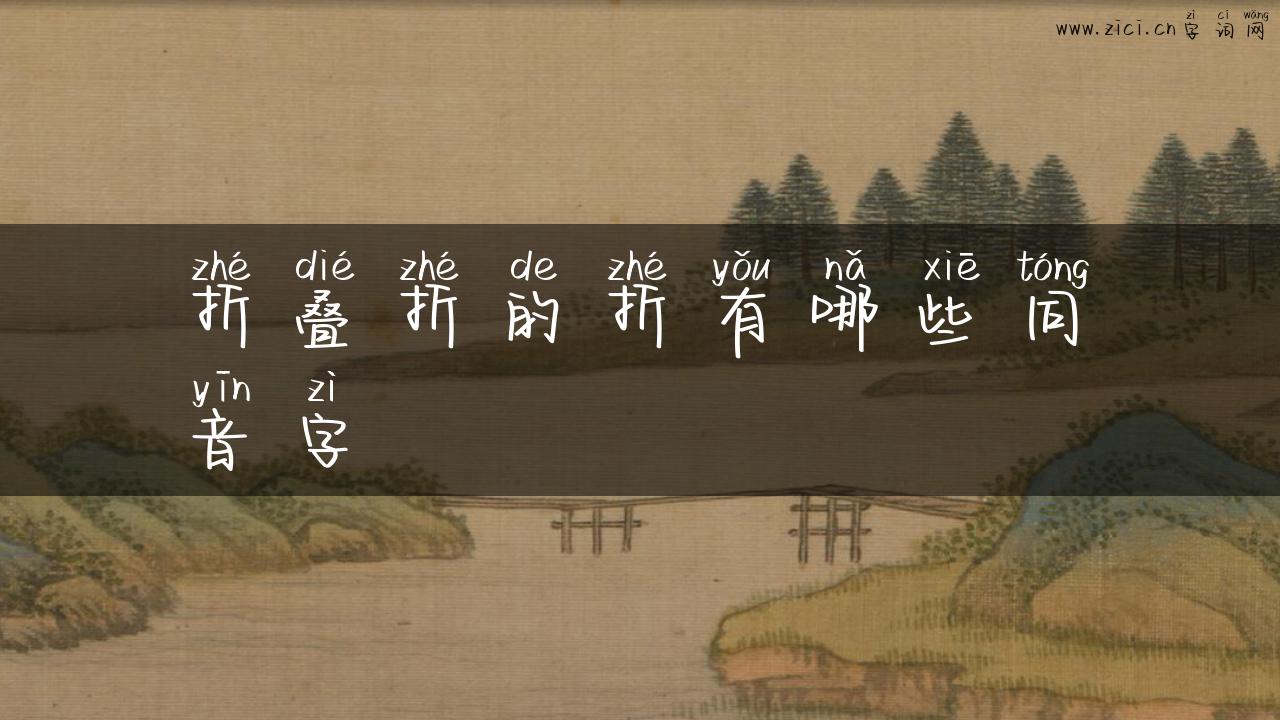 zì cí wǎng
www.zici.cn 字词网
zhé dié zhé de zhé yǒu nǎ xiē tóng
折叠折的折有哪些同
yīn zì
音字